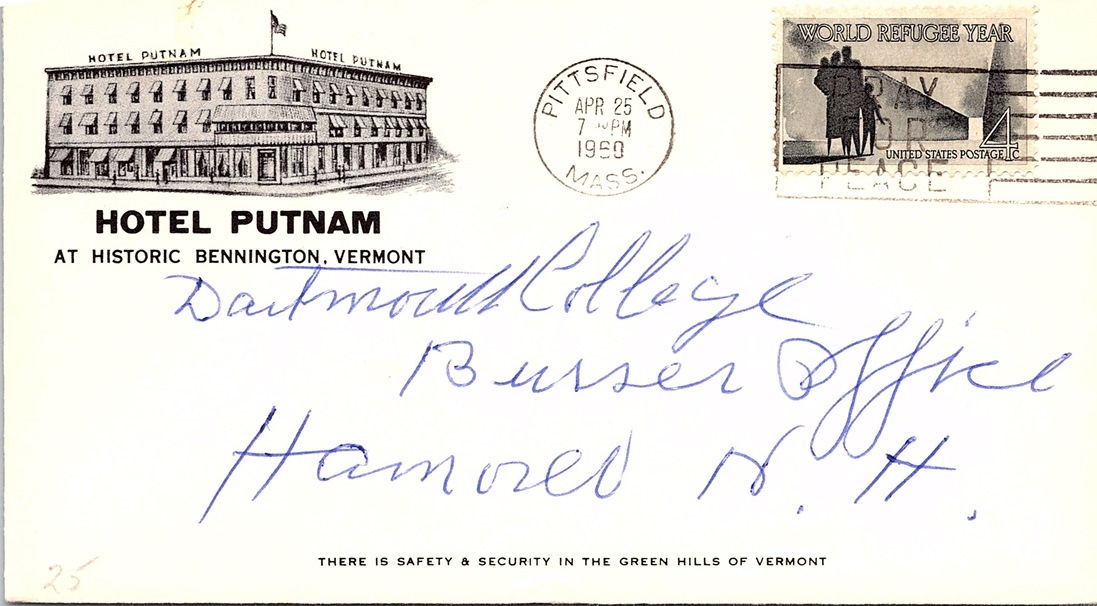 HOTEL PUTNAM
HOTEL PUTNAM
HOTEL PUTNAM
AT HISTORIC BENNINGTON, VERMONT
PITTSFIELD
APR 25
7 PM
1960
MASS.
WORLD REFUGEE YEAR
4c
UNITED STATES POSTAGE
PRAY
FOR
PEACE
Dartmouth College
Burser Office
Hanover N. H.
THERE IS SAFETY & SECURITY IN THE GREEN HILLS OF VERMONT
25